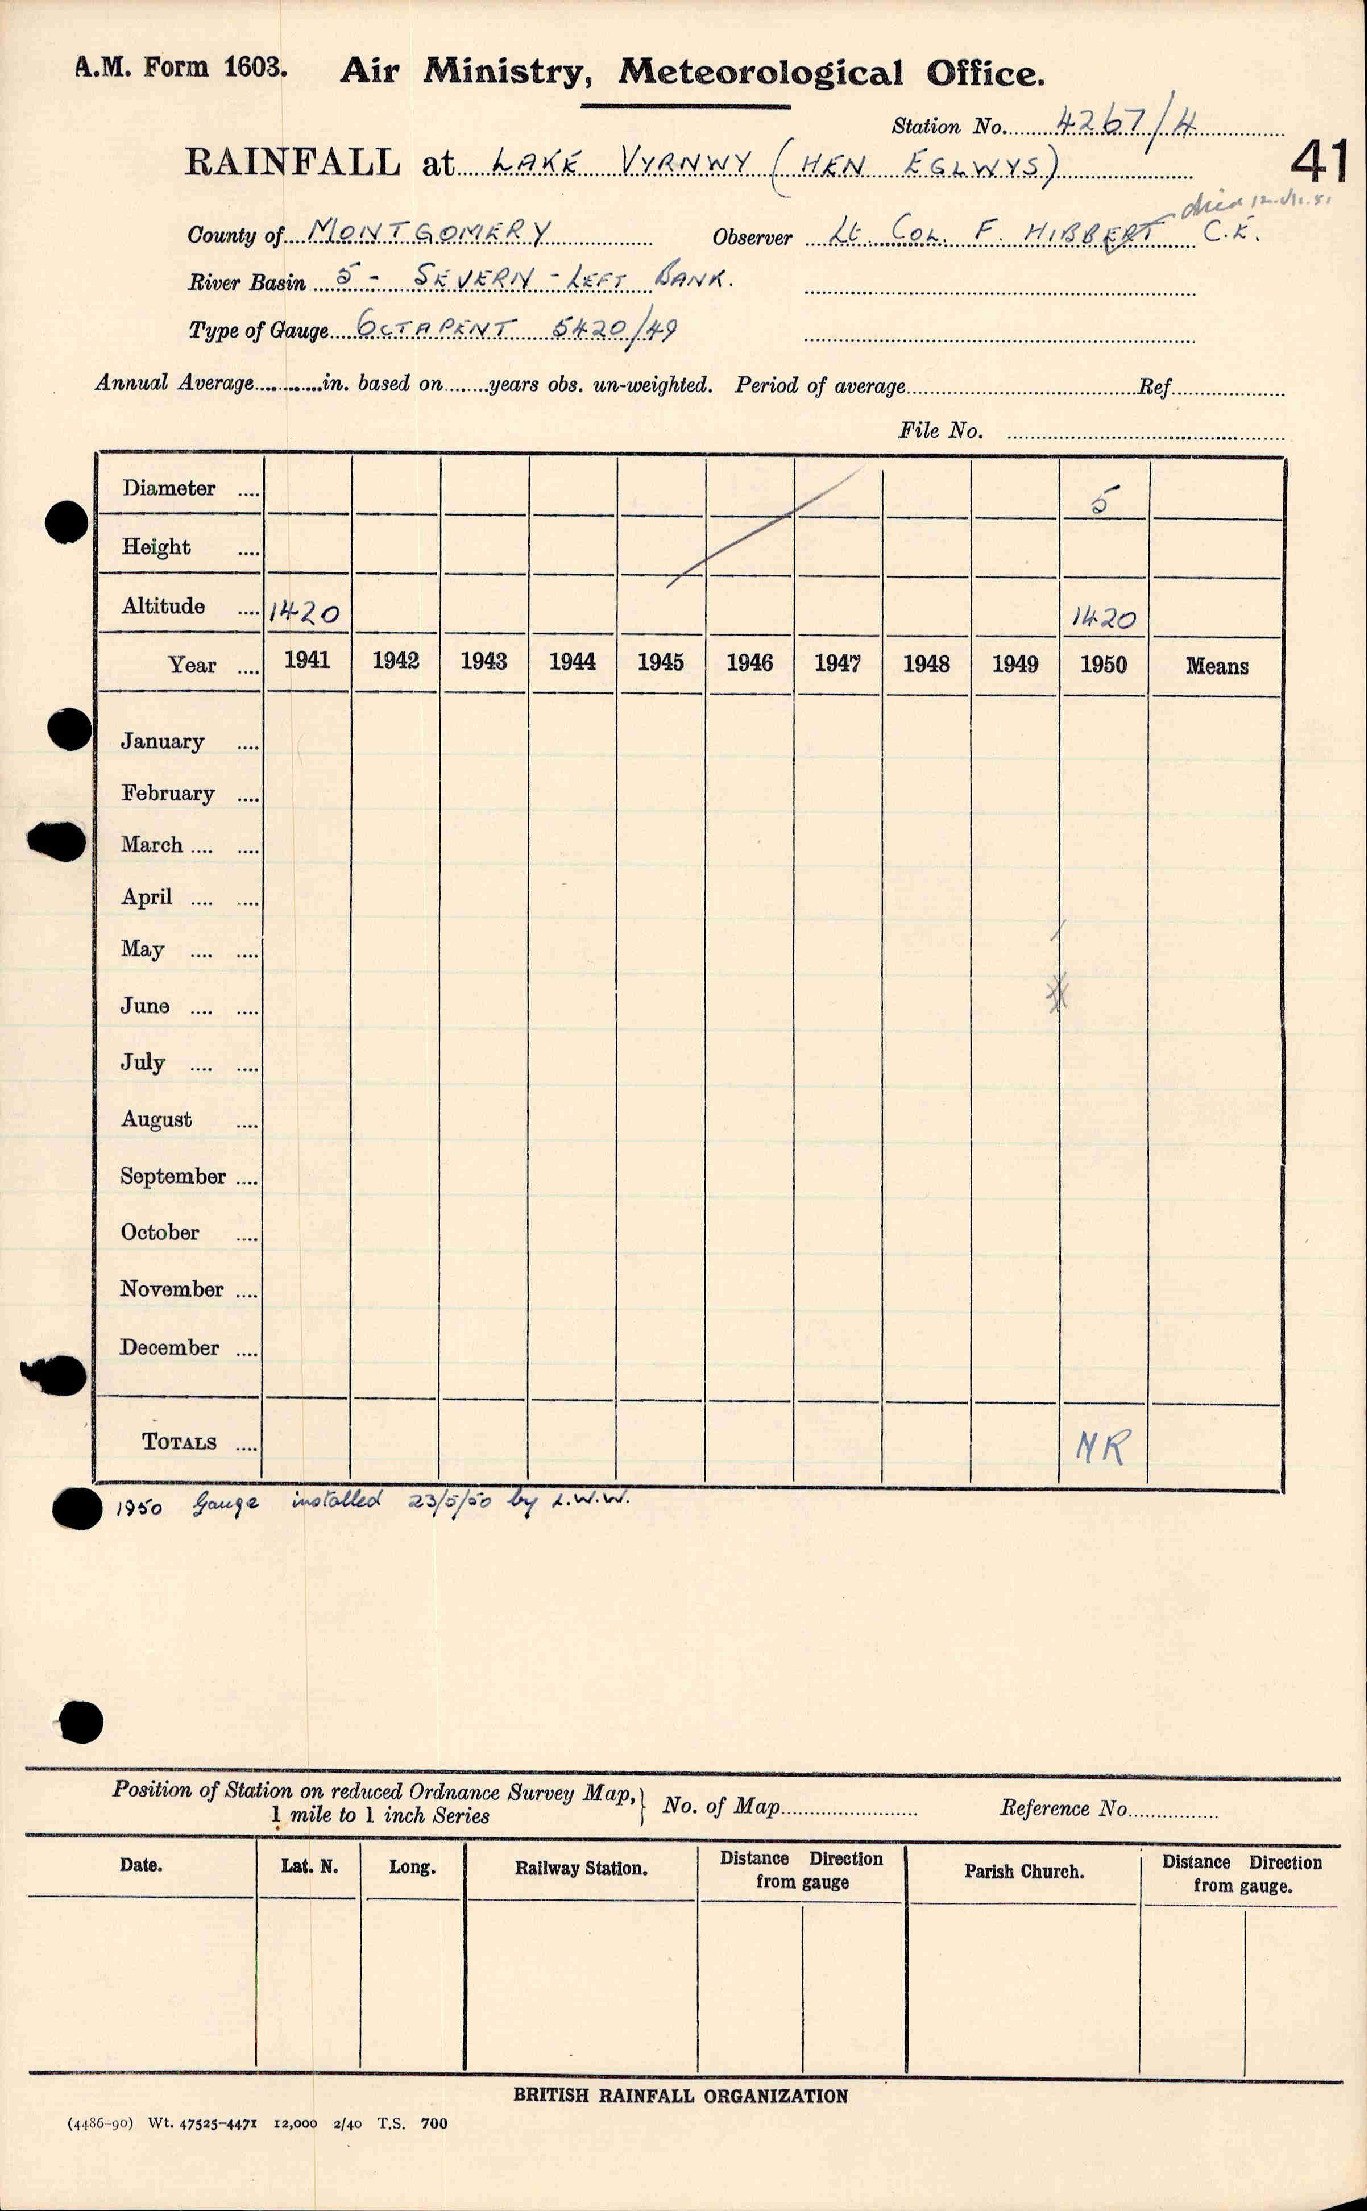 A.M. Form 1603. Air Ministry, Meteorological Office.
Station No. 4267/4
41
RAINFALL at LAKE VYRNWY (HEN EGLWYS)
died
County of MONTGOMERY Observer Lt. COL. F. HIBBERT C.E.
River Basin 5 - SEVERN - LEFT BANK.
Type of Gauge OCTAPENT 5420/49
Annual Average............in. based on........years obs. un-weighted. Period of average.......................Ref...............
File No. ...............
Diameter .... 5
Height ....
Altitude .... 1420 1420
Year .... 1941 1942 1943 1944 1945 1946 1947 1948 1949 1950 Means
January ....
February ....
March .... ....
April .... ....
May .... ....
June .... ....
July .... ....
August ....
September ....
October ....
November ....
December ....
TOTALS .... NR
1950 Gauge installed 23/5/50 by L.W.W.
Position of Station on reduced Ordnance Survey Map,} No. of Map............... Reference No...............
1 mile to 1 inch Series
Date. Lat. N. Long. Railway Station. Distance Direction from gauge Parish Church. Distance Direction from gauge.
BRITISH RAINFALL ORGANIZATION
(4486-90) Wt. 47525-4471 12,000 2/40 T.S. 700